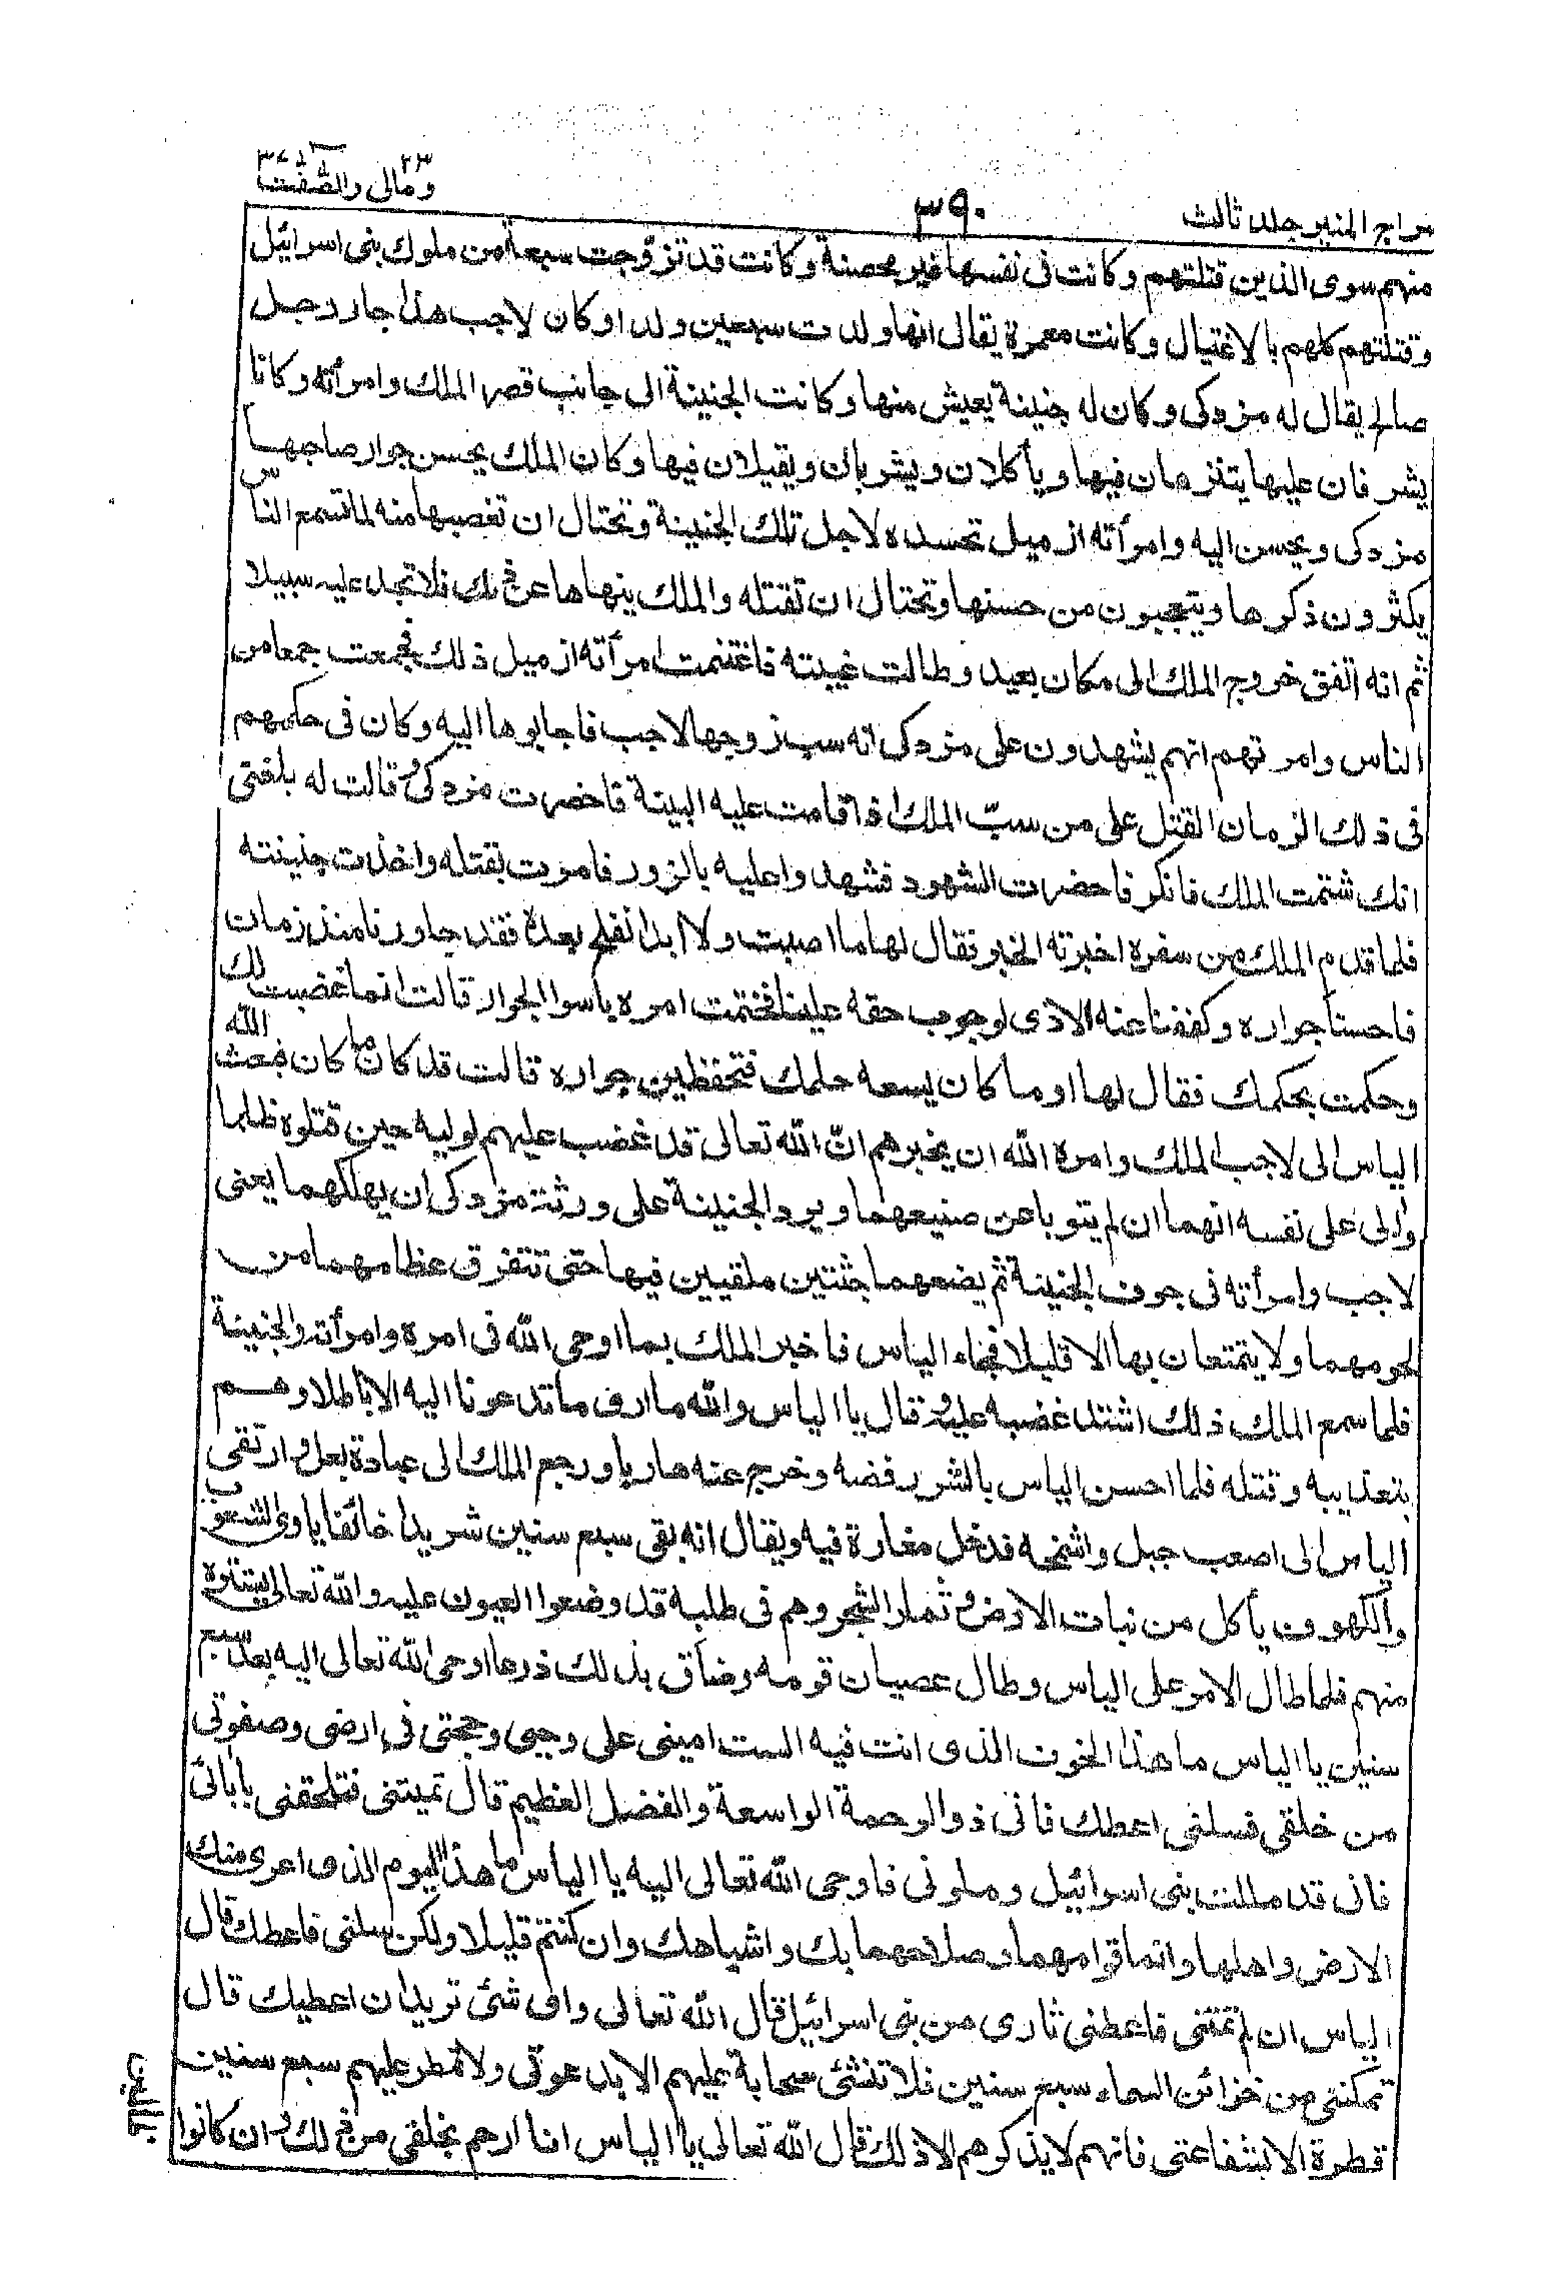 سراج المنير جلد ثالث
٣٩٠
٢٣ ومالى والصّٰفّٰت ٣٧
منهم سوى الذين قتلتهم وكانت فى نفسها غير محصنة وكانت قد تزوّجت سبعة من ملوك بنى اسرائيل
وقتلتهم كلهم بالاغتيال وكانت معمرة يقال انها ولدت سبعين ولدا وكان لاجب هذا جار رجل
صالح يقال له مزدكى وكان له جنينة يعيش منها وكانت الجنينة الى جانب قصر الملك وامرأته وكانا
يشرفان عليها يتنزهان فيها ويأكلان ويشربان ويقيلان فيها وكان الملك يحسن جوار صاحبها
مزدكى ويحسن اليه وامرأته ازميل تحسده لاجل تلك الجنينة وتحتال ان تغصبها منه لما تسمع الناس
يكثرون ذكرها ويتعجبون من حسنها وتحتال ان تقتله والملك ينهاها عن ذلك فلا تجد عليه سبيلا
ثم انه اتفق خروج الملك الى مكان بعيد وطالت غيبته فاغتنمت امرأته ازميل ذلك فجمعت جمعا من
الناس وامرتهم انهم يشهدون على مزدكى انه سب زوجها لاجب فاجابوها اليه وكان فى حكمهم
فى ذلك الزمان القتل على من سبّ الملك اذا قامت عليه البينة فاحضرت مزدكى وقالت له بلغنى
انك شتمت الملك فانكر فاحضرت الشهود فشهدوا عليه بالزور فامرت بقتله واخذت جنينته
فلما قدم الملك من سفره اخبرته الخبر فقال لها ما اصبت ولا ابدا نفلح بعده فقد جاورنا منذ زمان
فاحسنا جواره وكففنا عنه الاذى لوجوب حقه علينا فختمت امره باسوا الجوار قالت انما غضبت لك
وحكمت بحكمك فقال لها او ما كان يسعه حلمك فتحفظين جواره قالت قد كان ما كان فبعث الله
الياس الى لاجب الملك وامره الله ان يخبرهم انّ الله تعالى قد غضب عليهم لوليه حين قتلوه ظلما
والى على نفسه انهما ان لم يتوبا عن صنيعهما ويرد الجنينة على ورثة مزدكى ان يهلكهما يعنى
لاجب وامرأته فى جوف الجنينة ثم يضعهما جثتين ملقيين فيها حتى تتفرق عظامهما من
لحومهما ولا يتمتعان بها الا قليلا فجاء الياس فاخبر الملك بما اوحى الله فى امره وامرأته والجنينة
فلما سمع الملك ذلك اشتد غضبه عليه وقال يا الياس والله ما ارى ما تدعونا اليه الا باطلا وهم
بتعذيبه وقتله فلما احسن الياس بالشر رفضه وخرج عنه هاربا ورجع الملك الى عبادة بعل وارتقى
الياس الى اصعب جبل واشمخه فدخل مغارة فيه ويقال انه بقى سبع سنين شريدا خائفا ياوى الشعوب
والكهوف يأكل من نبات الارض وثمار الشجر وهم فى طلبه قد وضعوا العيون عليه والله تعالى يستره
منهم فلما طال الامر على الياس وطال عصيان قومه وضاق بذلك ذرعا اوحى الله تعالى اليه بعد سبع
سنين يا الياس ما هذا الخوف الذى انت فيه الست امينى على وحيى وحجتى فى ارضى وصفوتى
من خلقى فسلنى اعطك فانى ذو الرحمة الواسعة والفضل العظيم قال تميتنى فتلحقنى بابائى
فانى قد مللت بنى اسرائيل وملونى فاوحى الله تعالى اليه يا الياس ما هذا اليوم الذى اعرى منك
الارض واهلها وانما قوامهما وصلاحهما بك واشباهك وان كنتم قليلا ولكن سلنى فاعطك قال
الياس ان لم تمتنى فاعطنى ثارى من بنى اسرائيل قال الله تعالى واى شئ تريد ان اعطيك قال
تمكننى من خزائن السماء سبع سنين فلا تنشئ سحابة عليهم الا بدعوتى ولا تمطر عليهم سبع سنين
قطرة الا بشفاعتى فانهم لا يذكرهم الا ذلك قال الله تعالى يا الياس انا ارحم بخلقى من ذلك وان كانوا